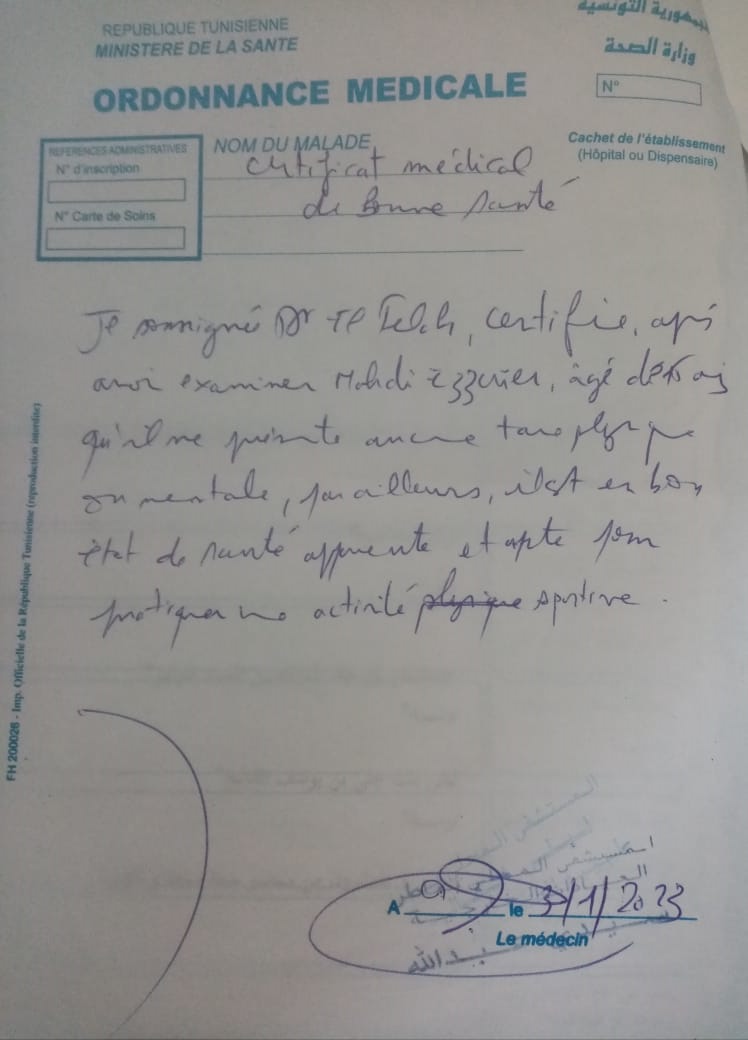 REPUBLIQUE TUNISIENNE
MINISTERE DE LA SANTE
الجمهورية التونسية
وزارة الصحة
ORDONNANCE MEDICALE
N°
REFERENCES ADMINISTRATIVES
N° d'inscription
N° Carte de Soins
NOM DU MALADE
Certificat médical
de bonne santé
Cachet de l'établissement
(Hôpital ou Dispensaire)
Je soussigné Dr certifie, après
avoir examiner Mahdi âgé de
qu'il ne présente aucune tare physique
ou mentale, par ailleurs, il est en bon
état de santé apparente et apte pour
pratiquer une activité physique sportive.
FH 200026 - Imp. Officielle de la République Tunisienne (reproduction interdite)
A le /1/2023
Le médecin